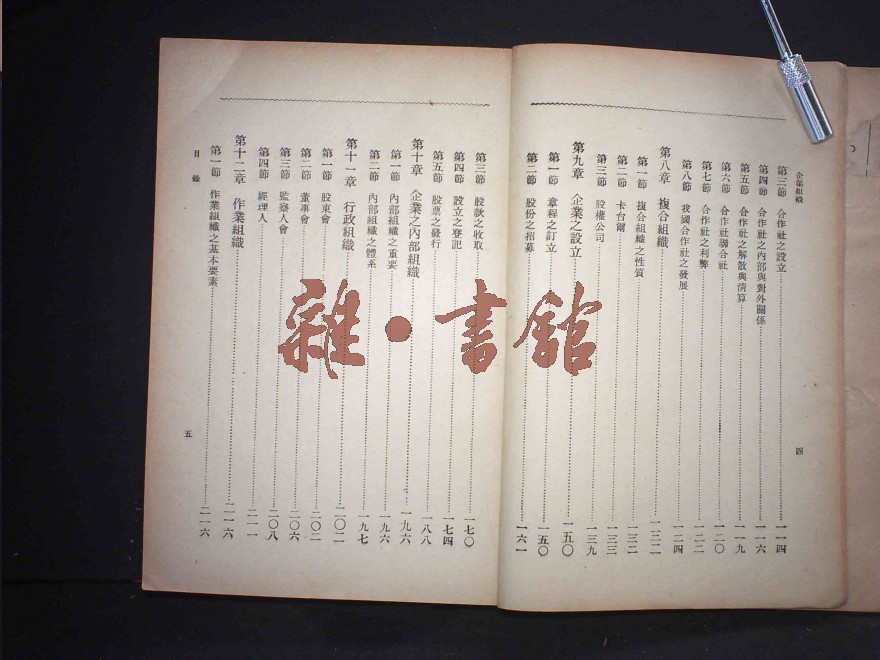 企業組織
第三節 合作社之設立 一一四
第四節 合作社之內部與對外關係 一一六
第五節 合作社之解散與清算 一一九
第六節 合作社聯合社 一二〇
第七節 合作社之利弊 一二二
第八節 我國合作社之發展 一二四
第八章 複合組織 一三二
第一節 複合組織之性質 一三二
第二節 卡台爾 一三三
第三節 股權公司 一三九
第九章 企業之設立 一五〇
第一節 章程之訂立 一五〇
第二節 股份之招募 一六一
四
第三節 股款之收取 一七〇
第四節 設立之登記 一七四
第五節 股票之發行 一八八
第十章 企業之內部組織 一九六
第一節 內部組織之重要 一九六
第二節 內部組織之體系 一九七
第十一章 行政組織 二〇二
第一節 股東會 二〇二
第二節 董事會 二〇六
第三節 監察人會 二〇八
第四節 經理人 二一一
第十二章 作業組織 二一六
第一節 作業組織之基本要素 二一六
目錄
五
雜·書館